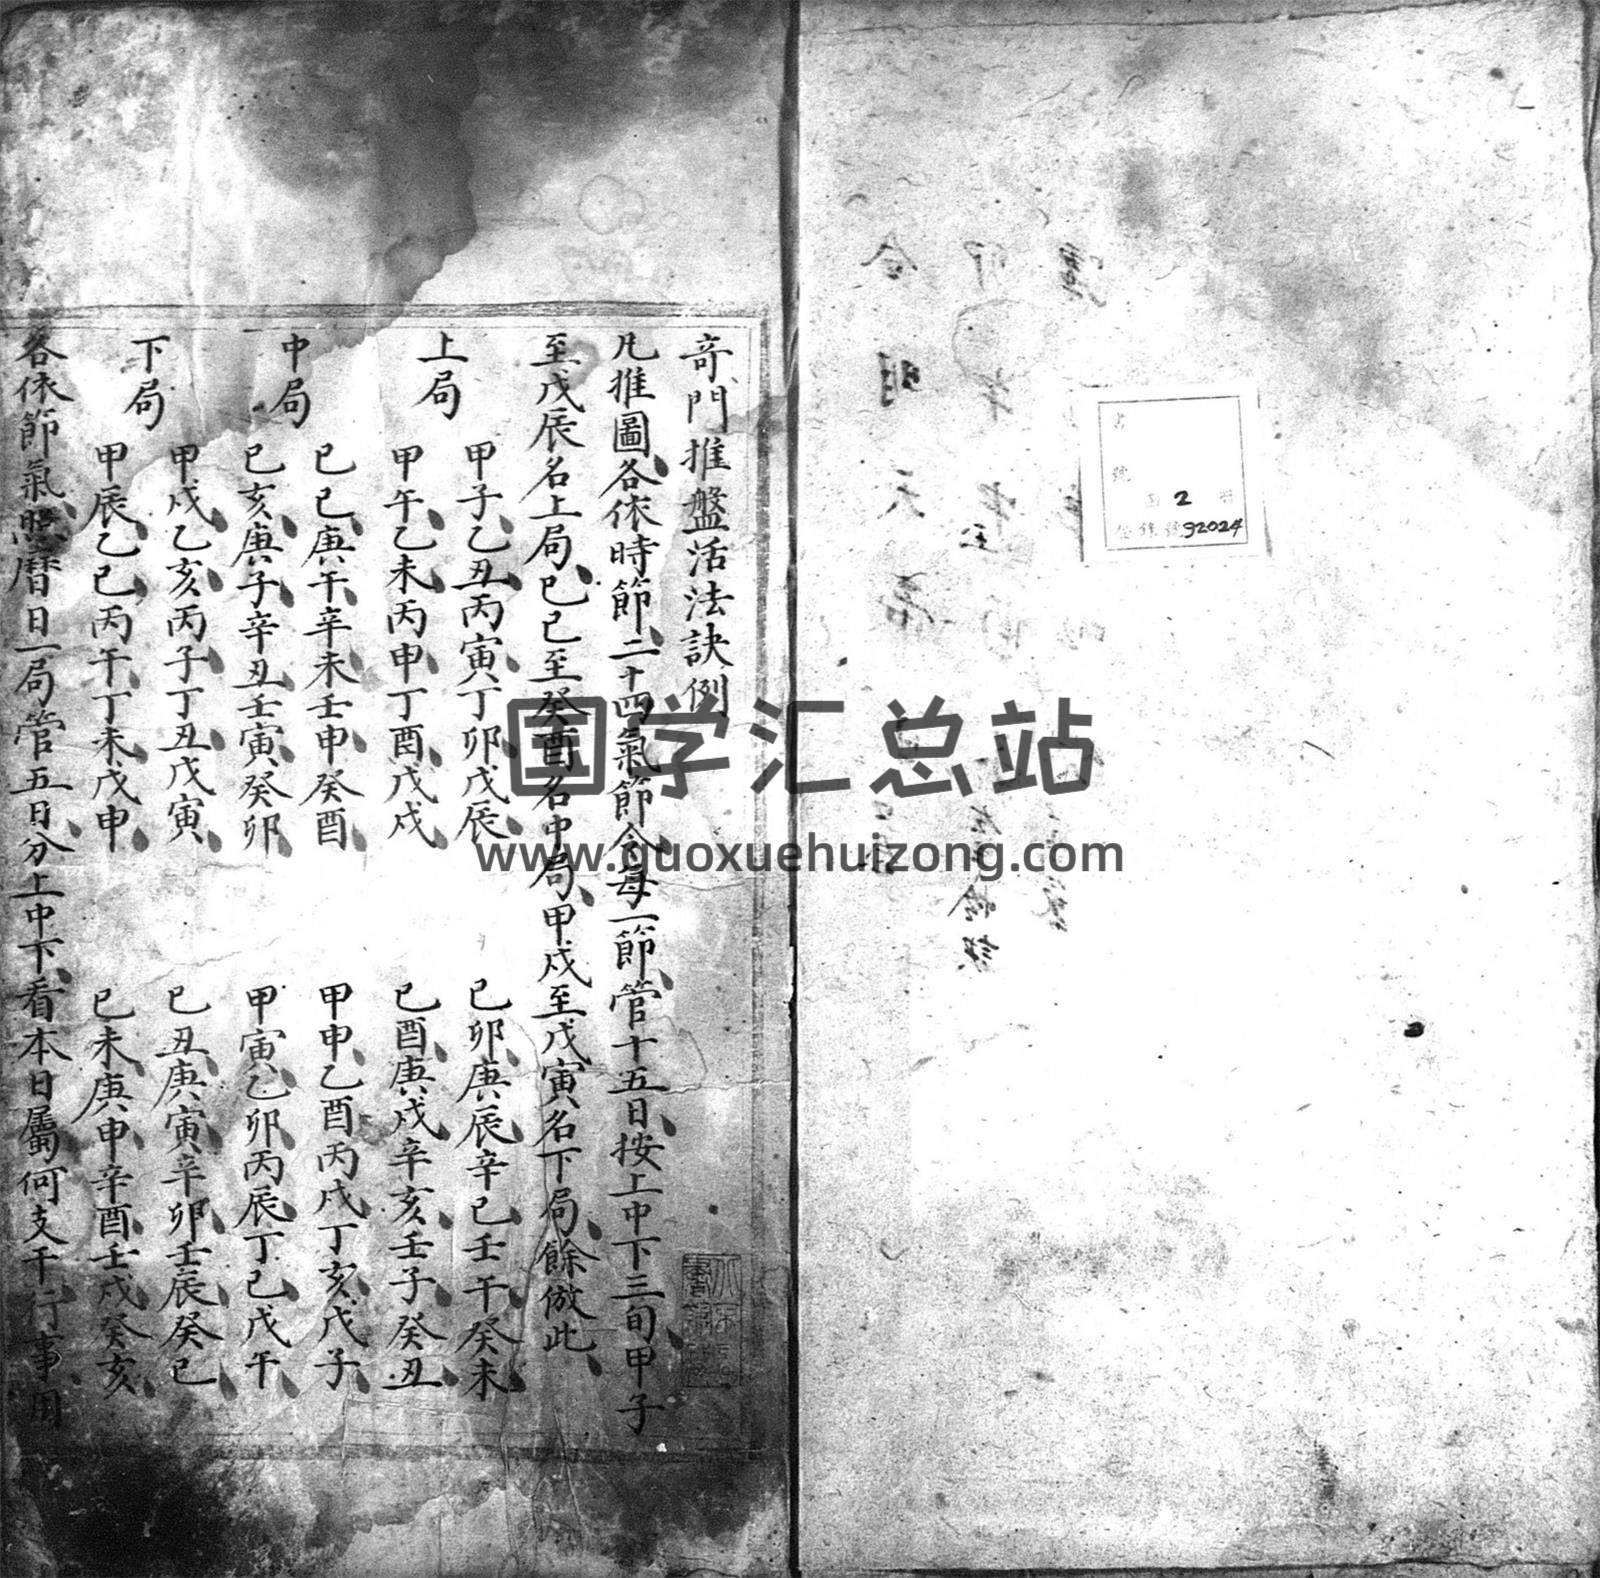 書
號
函 2 冊
登錄號 92024
奇門推盤活法訣例
凡推圖各依時節二十四氣節令每一節管十五日按上中下三旬甲子
至戊辰名上局己巳至癸酉名中局甲戌至戊寅名下局餘倣此
上局
甲子乙丑丙寅丁卯戊辰 己卯庚辰辛巳壬午癸未
甲午乙未丙申丁酉戊戌 己酉庚戌辛亥壬子癸丑
中局
己巳庚午辛未壬申癸酉 甲申乙酉丙戌丁亥戊子
己亥庚子辛丑壬寅癸卯 甲寅乙卯丙辰丁巳戊午
下局
甲戌乙亥丙子丁丑戊寅 己丑庚寅辛卯壬辰癸巳
甲辰乙巳丙午丁未戊申 己未庚申辛酉壬戌癸亥
各依節氣照曆日一局管五日分上中下看本日屬何支干行事用
国学汇总站
www.guoxuehuizong.com